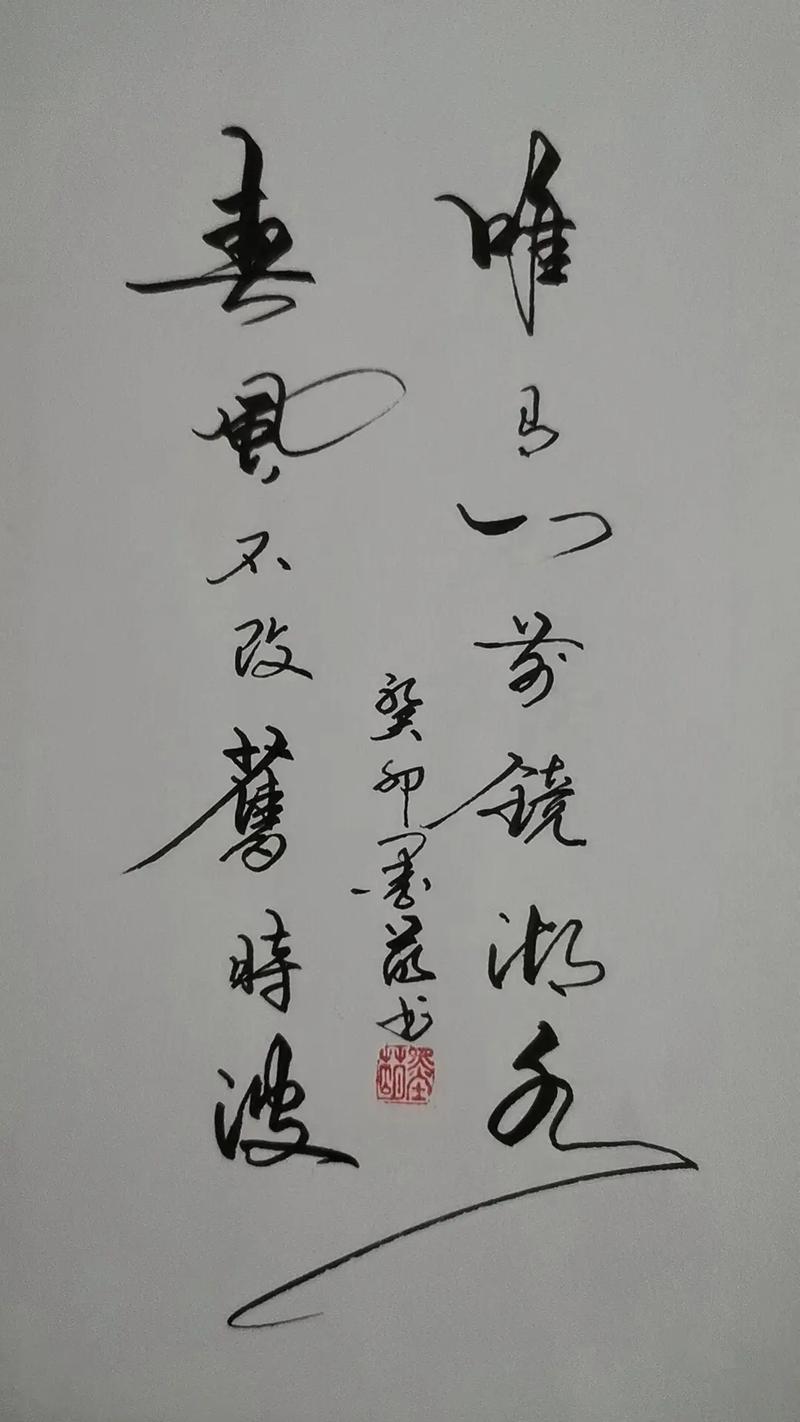 唯有门前鏡湖水
春風不改舊時波
癸卯墨书